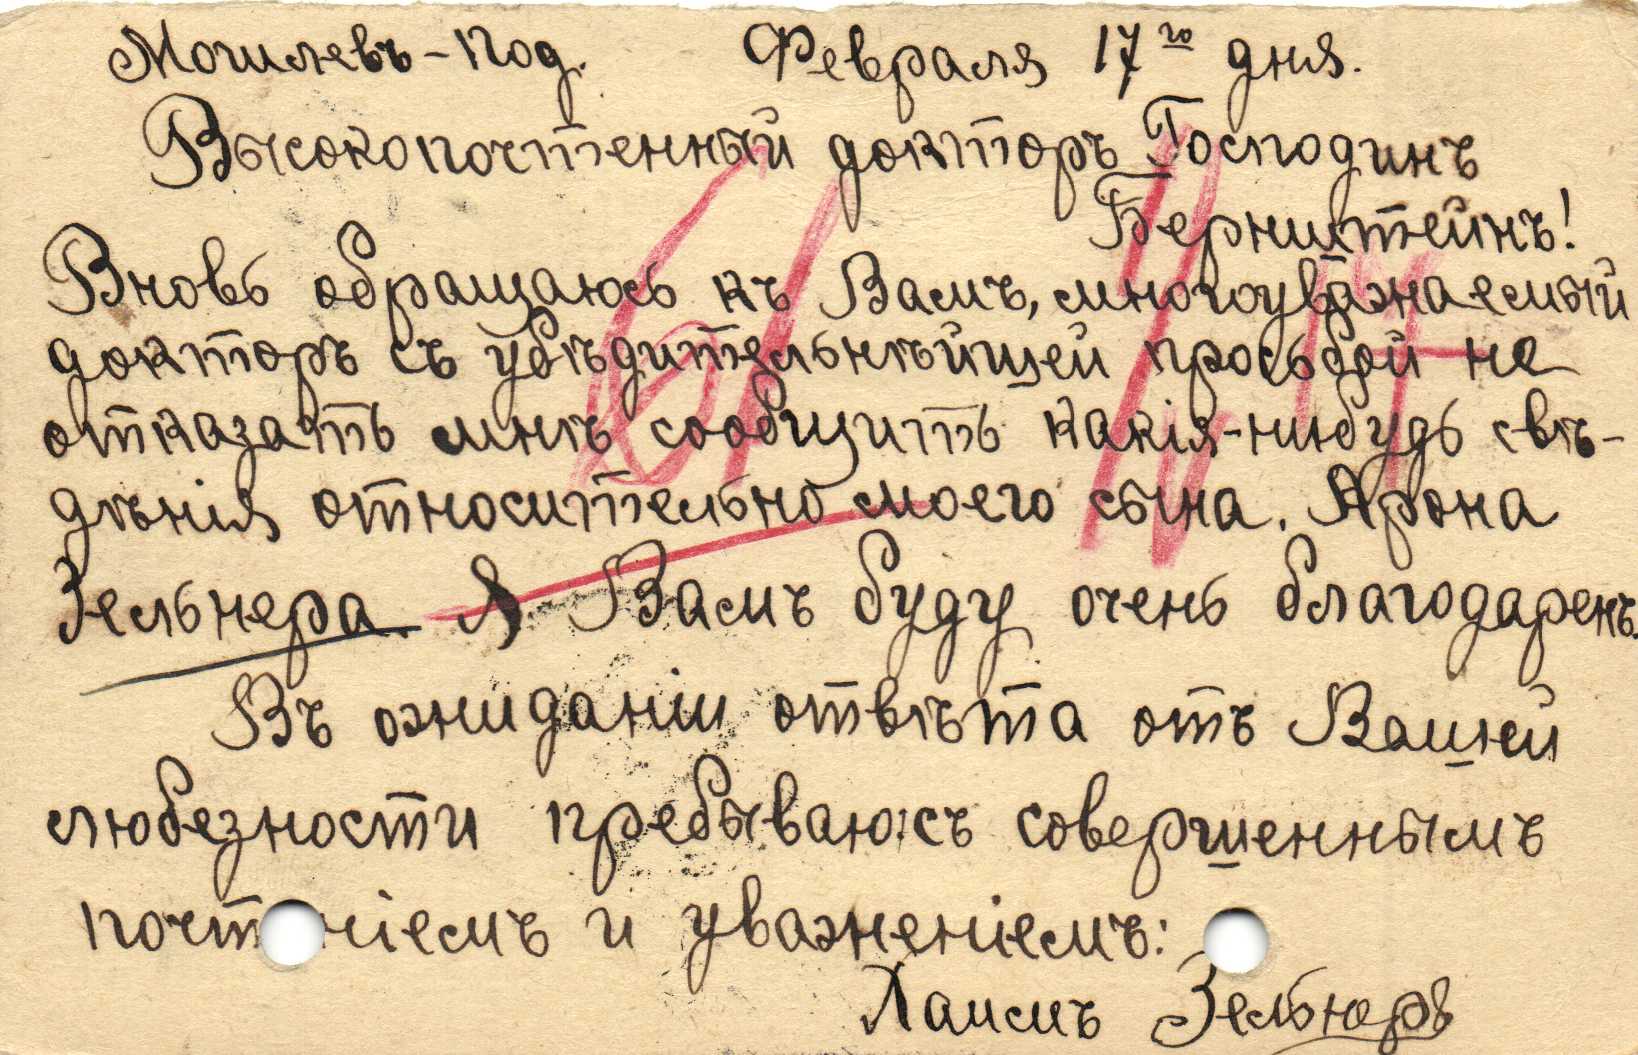 Могилевъ-Под. Февраля 17го дня.
Высокопочтенный докторъ Господинъ
Бернштейнъ!
Вновь обращаюсь къ Вамъ, многоуважаемый
докторъ съ убѣдительнѣйшей просьбой не
отказать мнѣ сообщить какія-нибудь свѣ-
дѣнія относительно моего сына. Арона
Зельнера. Я Вамъ буду очень благодаренъ.
Въ ожиданіи отвѣта отъ Вашей
любезности пребываю съ совершеннымъ
почт ніемъ и уваженіемъ:
Хаимъ Зельнеръ